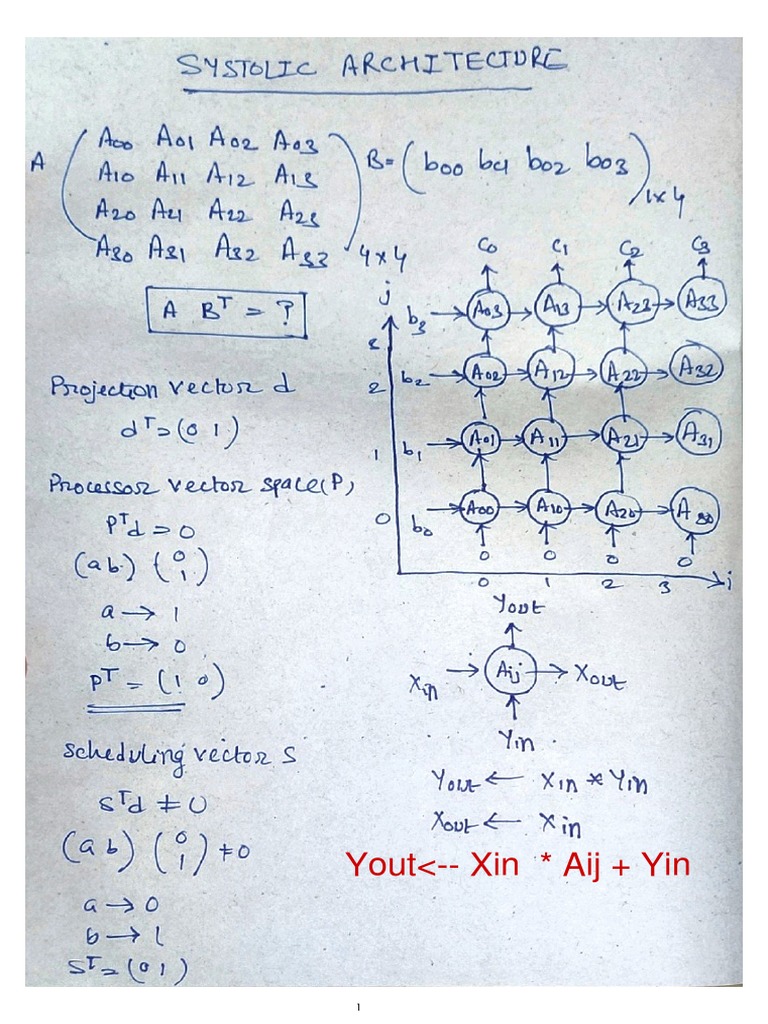 SYSTOLIC ARCHITECTURE
A
A00 A01 A02 A03
A10 A11 A12 A13
A20 A21 A22 A23
A30 A31 A32 A33
4x4
B= (b00 b01 b02 b03) 1x4
A B^T = ?
Projection vector d
d^T = (0 1)
Processor vector space(P)
P^T d = 0
(a b) (0 1)
a → 1
b → 0
P^T = (1 0)
Scheduling vector S
S^T d ≠ 0
(a b) (0 1) ≠ 0
a → 0
b → 1
S^T = (0 1)
C0 C1 C2 C3
j
b3 → A03 → A13 → A23 → A33
3
2 b2 → A02 → A12 → A22 → A32
1 b1 → A01 → A11 → A21 → A31
0 b0 → A00 → A10 → A20 → A30
0 0 0 0
0 1 2 3 i
Yout
Xin → Aij → Xout
Yin
Yout ← Xin * Yin
Xout ← Xin
Yout<-- Xin * Aij + Yin
1